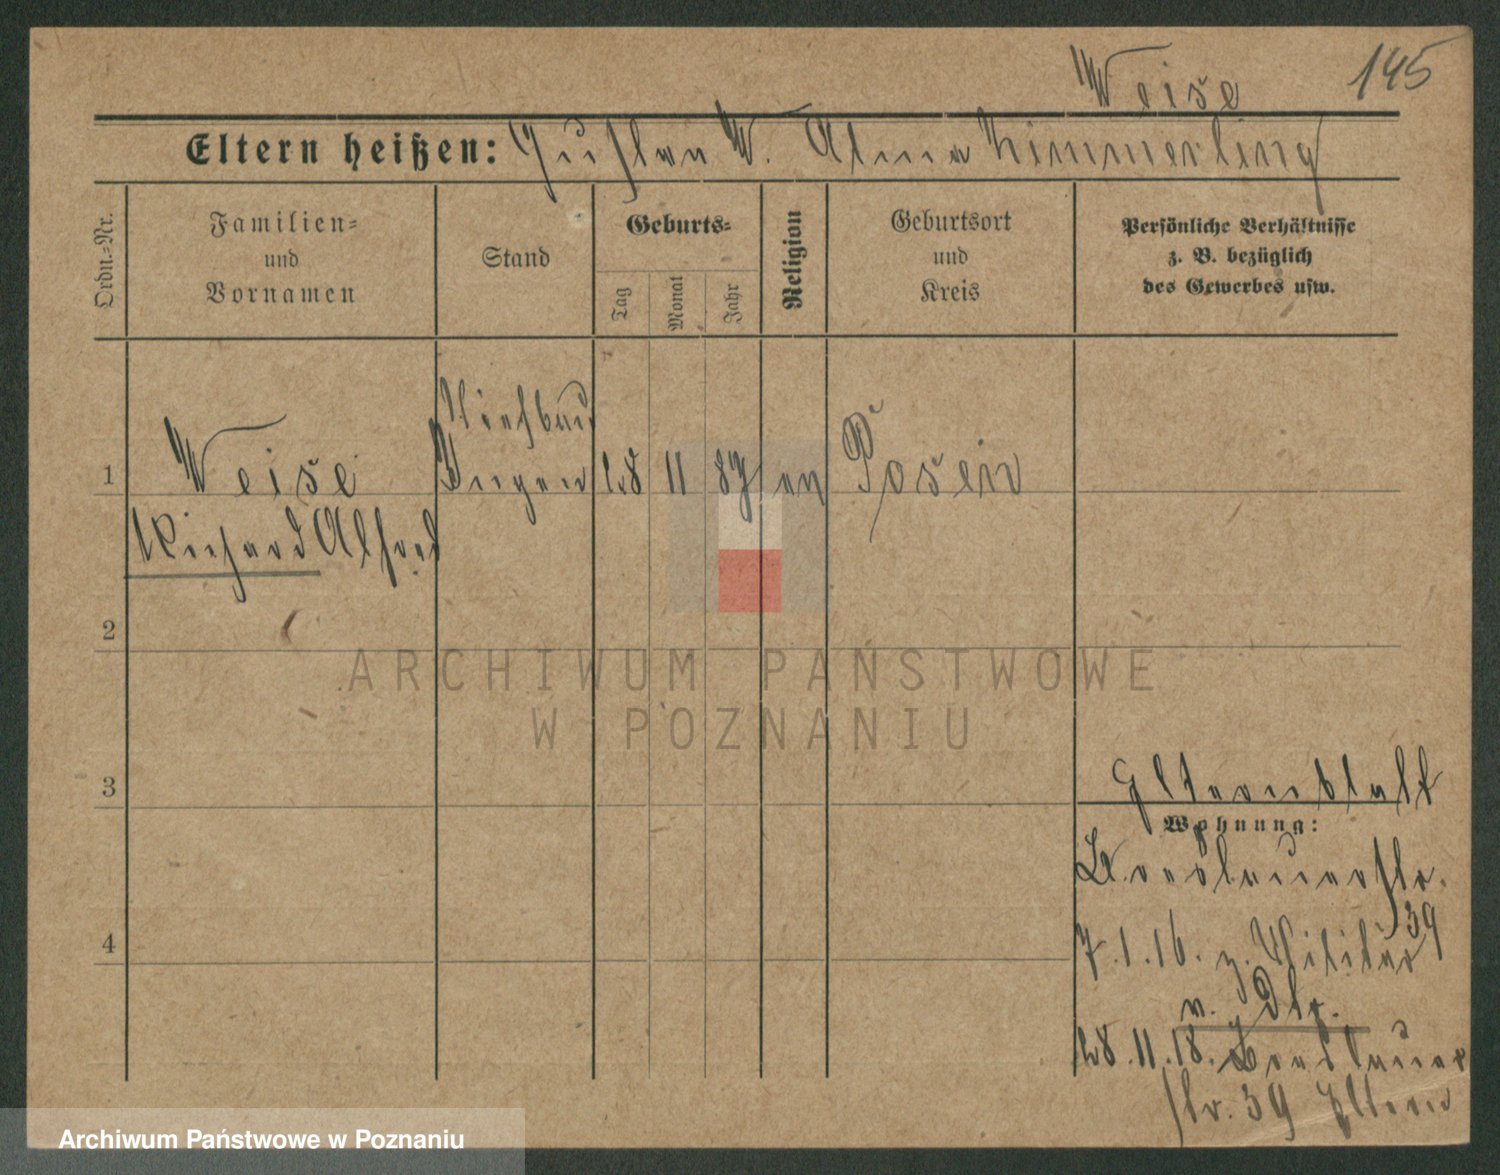 Weise 145
Eltern heißen: Gustav W. Alma Zimmerling
Ordn.=Nr.
Familien=
und
Vornamen
Stand
Geburts=
Tag
Monat
Jahr
Religion
Geburtsort
und
Kreis
Persönliche Verhältnisse
z. B. bezüglich
des Gewerbes usw.
Tiefbau
1 Weise Ingen 28 11 87 ev Posen
Richard Alfred
2
3
Elternblatt
Wohnung:
Breslauerstr.
39
4
7.1.16. z. Militär
v. Dtr.
28.11.18. Breslauer
str. 39 Eltern
ARCHIWUM PAŃSTWOWE
W POZNANIU
Archiwum Państwowe w Poznaniu